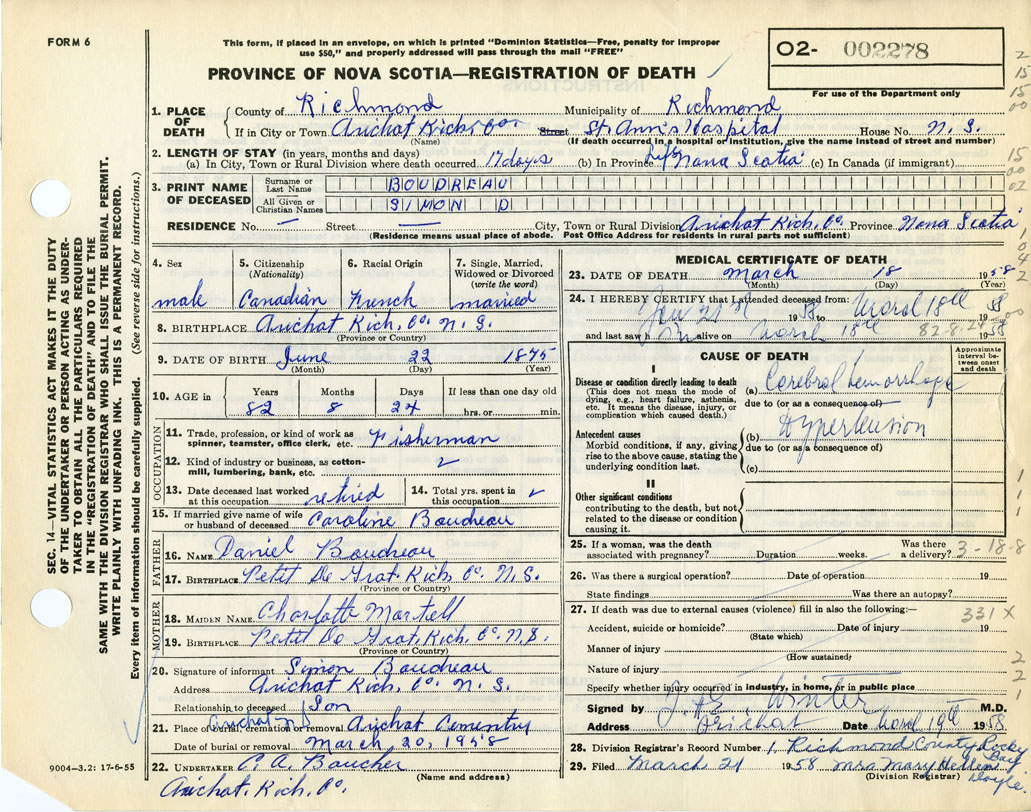 FORM 6
This form, if placed in an envelope, on which is printed "Dominion Statistics—Free, penalty for improper
use $50," and properly addressed will pass through the mail "FREE"
PROVINCE OF NOVA SCOTIA—REGISTRATION OF DEATH
O2- 002278
For use of the Department only
1. PLACE OF DEATH
County of Richmond Municipality of Richmond
If in City or Town Arichat Rich. Co. Street St. Ann's Hospital House No. N. S.
(Name) (If death occurred in a hospital or institution, give the name instead of street and number)
2. LENGTH OF STAY (in years, months and days)
(a) In City, Town or Rural Division where death occurred 17 days (b) In Province Life Nova Scotia (c) In Canada (if immigrant)
3. PRINT NAME OF DECEASED
Surname or Last Name BOUDREAU
All Given or Christian Names SIMON D
RESIDENCE No. — Street — City, Town or Rural Division Arichat Rich. Co. Province Nova Scotia
(Residence means usual place of abode. Post Office Address for residents in rural parts not sufficient)
4. Sex male
5. Citizenship (Nationality) Canadian
6. Racial Origin French
7. Single, Married, Widowed or Divorced (write the word) married
8. BIRTHPLACE Arichat Rich. Co. N. S.
(Province or Country)
9. DATE OF BIRTH June 22 1875
(Month) (Day) (Year)
10. AGE in Years 82 Months 8 Days 24 If less than one day old
hrs. or min.
OCCUPATION
11. Trade, profession, or kind of work as spinner, teamster, office clerk, etc. Fisherman
12. Kind of industry or business, as cotton-mill, lumbering, bank, etc.
13. Date deceased last worked at this occupation retired
14. Total yrs. spent in this occupation
15. If married give name of wife or husband of deceased Caroline Boudreau
FATHER
16. NAME Daniel Boudreau
17. BIRTHPLACE Petit De Grat. Rich. Co. N. S.
MOTHER
18. MAIDEN NAME Charlotte Martell
19. BIRTHPLACE Petit De Grat. Rich. Co. N. S.
(Province or Country)
20. Signature of informant Simon Boudreau
Address Arichat Rich. Co. N. S.
Relationship to deceased Son
21. Place of burial, cremation or removal Arichat N S Arichat Cementry
Date of burial or removal March 20, 1958
22. UNDERTAKER C. A. Boucher
(Name and address)
Arichat. Rich. Co.
MEDICAL CERTIFICATE OF DEATH
23. DATE OF DEATH March 18 1958
(Month) (Day) (Year)
24. I HEREBY CERTIFY that I attended deceased from:
Jan 21st 1958 to March 18th 58
and last saw h im alive on March 18th 1958
82-8-24
CAUSE OF DEATH
Approximate interval between onset and death
I
Disease or condition directly leading to death
(This does not mean the mode of dying, e.g., heart failure, asthenia, etc. It means the disease, injury, or complication which caused death.)
(a) Cerebral hemorrhage
due to (or as a consequence of)
Antecedent causes
Morbid conditions, if any, giving rise to the above cause, stating the underlying condition last.
(b) Hypertension
due to (or as a consequence of)
(c)
II
Other significant conditions
contributing to the death, but not related to the disease or condition causing it.
25. If a woman, was the death associated with pregnancy? Duration weeks. Was there a delivery? 3-18-8
26. Was there a surgical operation? Date of operation 19
State findings Was there an autopsy?
27. If death was due to external causes (violence) fill in also the following:— 331 X
Accident, suicide or homicide? Date of injury 19
(State which)
Manner of injury
(How sustained)
Nature of injury
Specify whether injury occurred in industry, in home, or in public place
Signed by Winter M.D.
Address Arichat Date March 19th 1958
28. Division Registrar's Record Number 1, Richmond County Rocky Bay
29. Filed March 21 1958 Mrs Mary Hellen Doyle
(Division Registrar)
SEC. 14—VITAL STATISTICS ACT MAKES IT THE DUTY
OF THE UNDERTAKER OR PERSON ACTING AS UNDER-
TAKER TO OBTAIN ALL THE PARTICULARS REQUIRED
IN THE "REGISTRATION OF DEATH" AND TO FILE THE
SAME WITH THE DIVISION REGISTRAR WHO SHALL ISSUE THE BURIAL PERMIT.
WRITE PLAINLY WITH UNFADING INK. THIS IS A PERMANENT RECORD.
Every item of information should be carefully supplied. (See reverse side for instructions.)
9004—3.2: 17-6-55